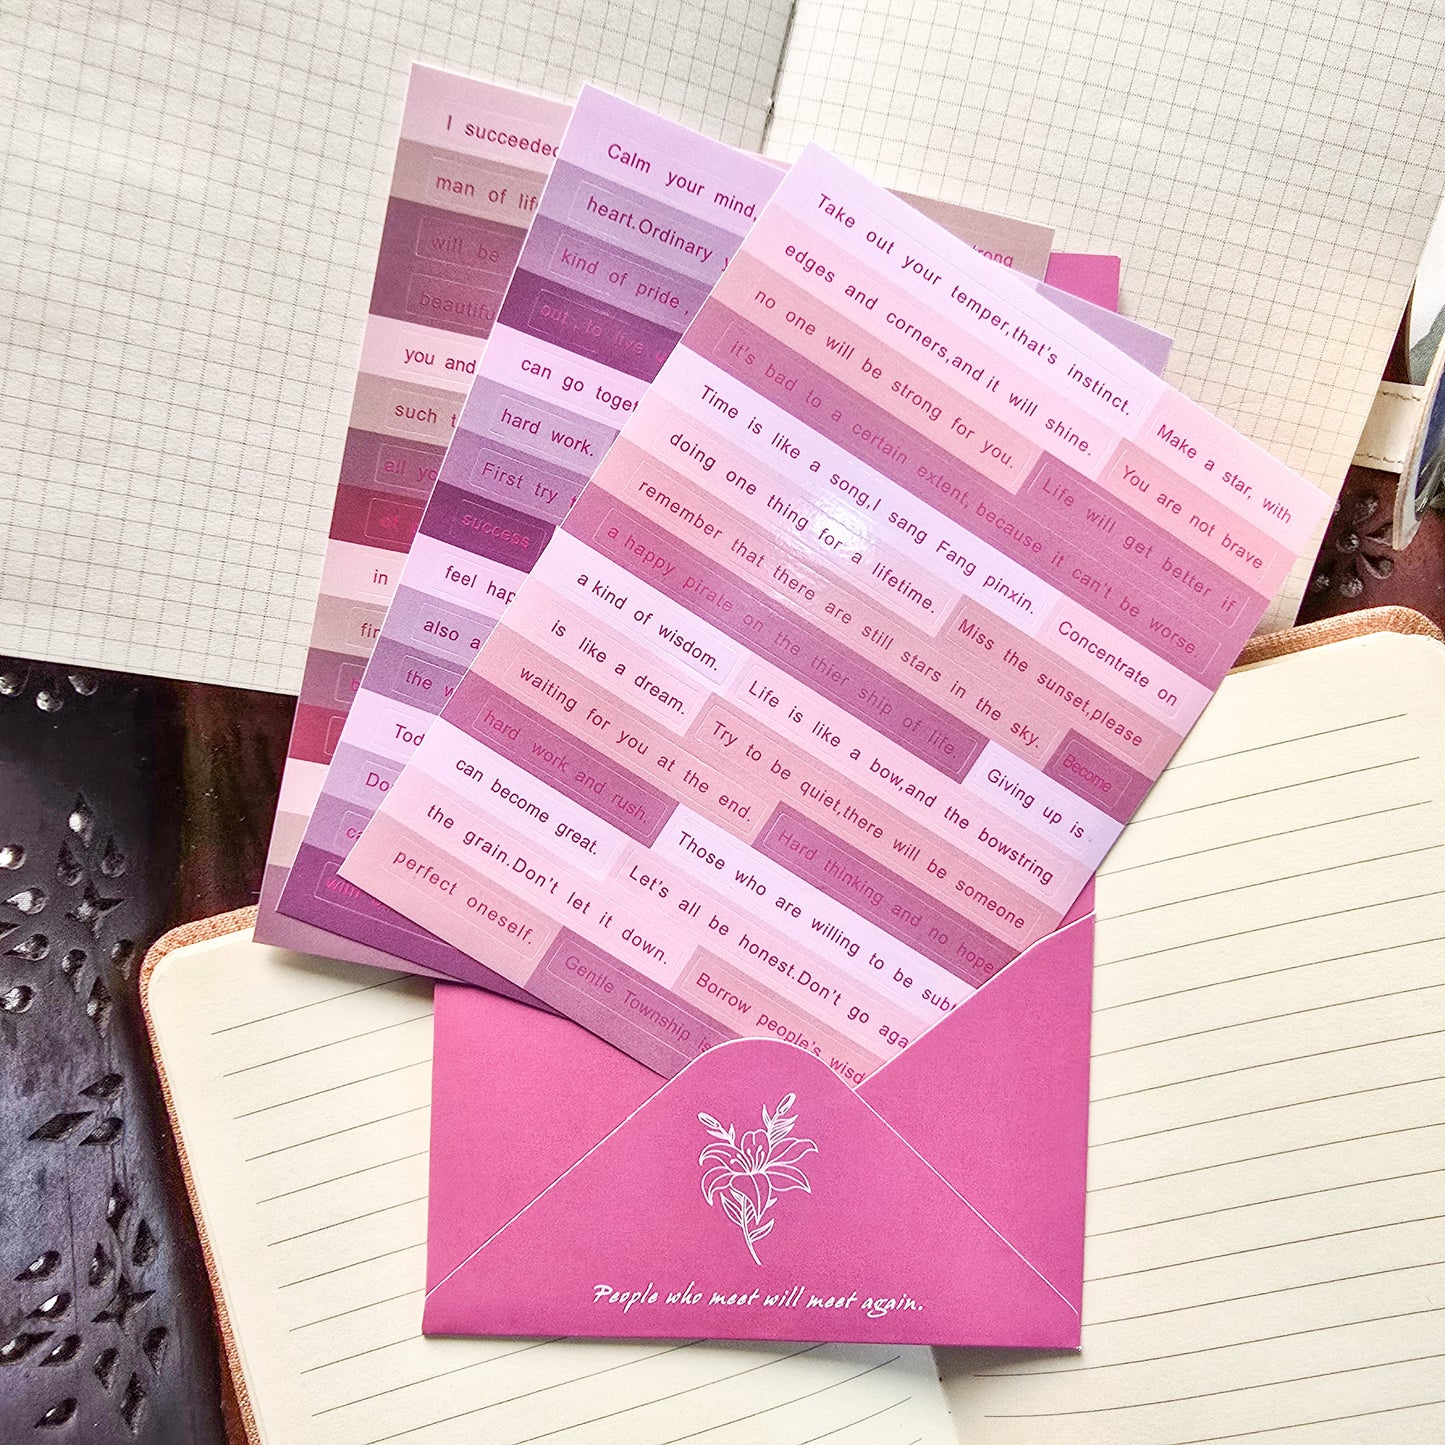 I succeeded
man of lif
will be
beautifu
you and
such t
all yo
of
in
fir
Calm your mind,
heart.Ordinary y
kind of pride ,
out to live u
can go toget
hard work.
First try t
success
feel hap
also a
the w
Tod
Do
ca
with
trong
Take out your temper,that's instinct.
Make a star, with
edges and corners,and it will shine.
You are not brave
no one will be strong for you.
Life will get better if
it's bad to a certain extent, because it can't be worse.
Time is like a song,I sang Fang pinxin.
Concentrate on
doing one thing for a lifetime.
Miss the sunset,please
remember that there are still stars in the sky.
Become
a happy pirate on the thier ship of life.
Giving up is
a kind of wisdom.
Life is like a bow,and the bowstring
is like a dream.
Try to be quiet,there will be someone
waiting for you at the end.
Hard thinking and no hope
hard work and rush.
Those who are willing to be subt
can become great.
Let's all be honest.Don't go aga
the grain.Don't let it down.
Borrow people's wisd
perfect oneself.
Gentle Township is
People who meet will meet again.